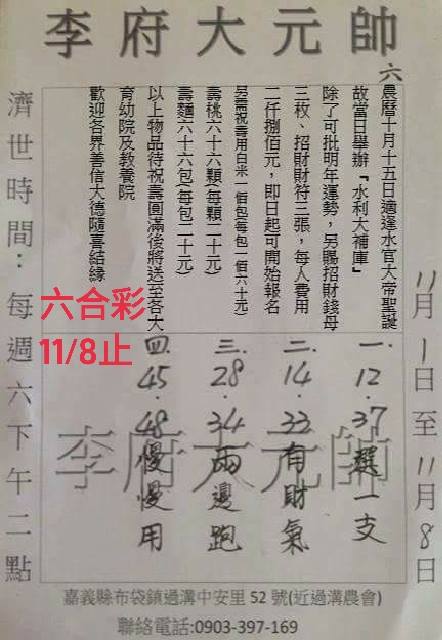 李府大元帥
六
農曆十月十五日適逢水官大帝聖誕
故當日舉辦『水利大補庫』
除了可批明年運勢，另賜招財錢母
三枚、招財財符三張，每人費用
二仟捌佰元，即日起可開始報名
另需祝壽用白米一佰包(每包一佰六十元)
壽桃六十六顆(每顆二十元)
壽麵六十六包(每包二十元)
以上物品待祝壽圓滿後將送至各大
育幼院及教養院
歡迎各界善信大德隨喜結緣
濟世時間：每週六下午二點
11月1日至11月8日
六合彩
11/8止
一.12.37選一支
二.14.33有財氣
三.28.34兩邊跑
四.45.48慢慢用
李府大元帥
嘉義縣布袋鎮過溝中安里 52 號(近過溝農會)
聯絡電話:0903-397-169